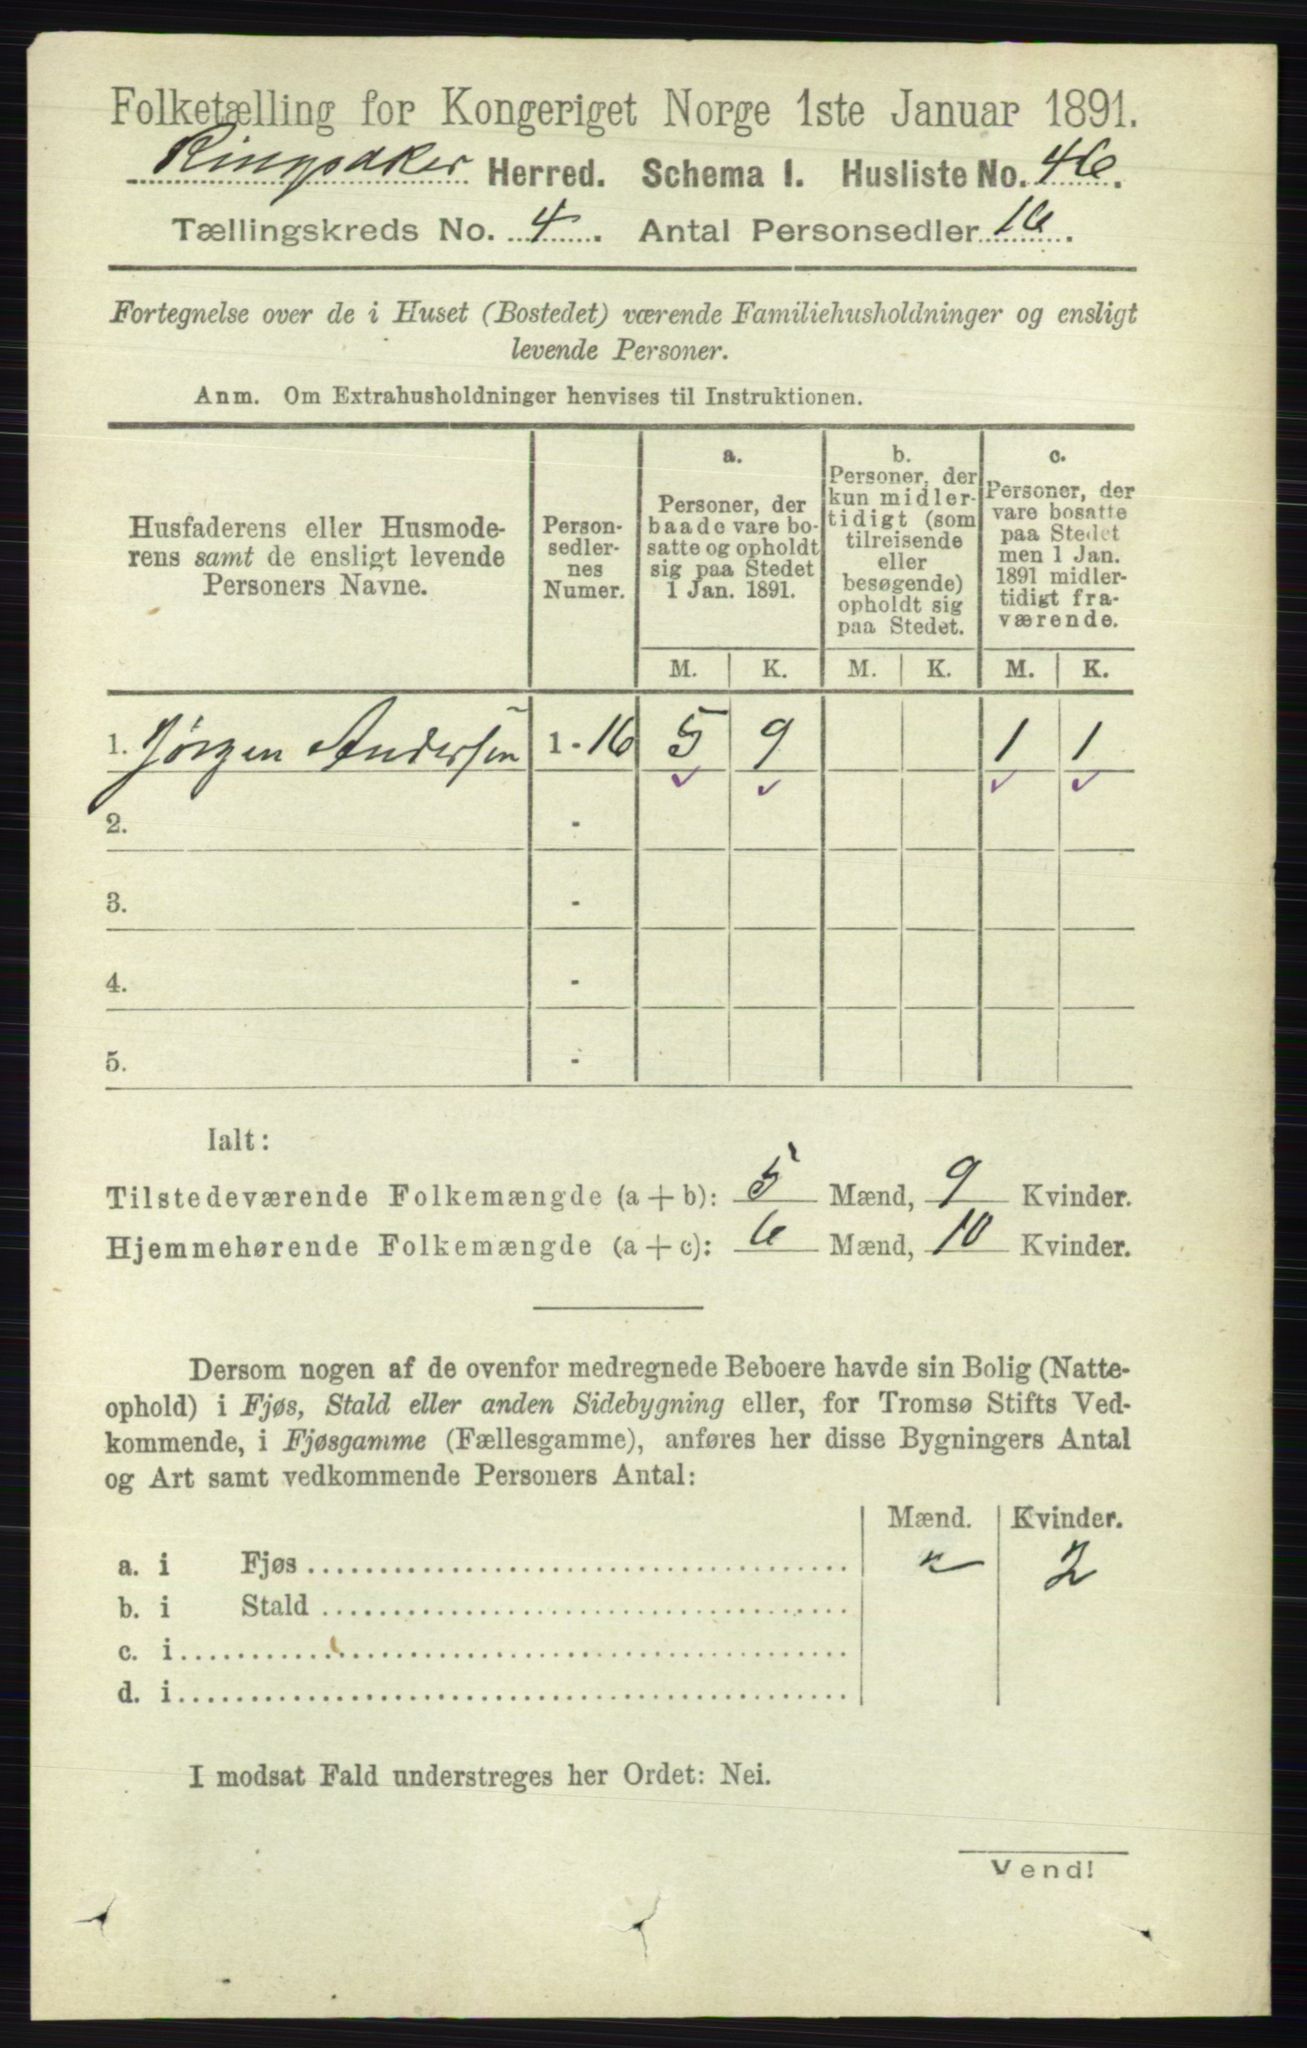 Folketælling for Kongeriget Norge 1ste Januar 1891.
Ringsaker Herred. Schema I. Husliste No. 46.
Tællingskreds No. 4. Antal Personsedler 16.
Fortegnelse over de i Huset (Bostedet) værende Familiehusholdninger og ensligt
levende Personer.
Anm. Om Extrahusholdninger henvises til Instruktionen.
Husfaderens eller Husmode-
rens samt de ensligt levende
Personers Navne.
Person-
sedler-
nes
Numer.
a.
Personer, der
baade vare bo-
satte og opholdt
sig paa Stedet
1 Jan. 1891.
b.
Personer, der
kun midler-
tidigt (som
tilreisende
eller
besøgende)
opholdt sig
paa Stedet.
c.
Personer, der
vare bosatte
paa Stedet
men 1 Jan.
1891 midler-
tidigt fra-
værende.
M. K. M. K. M. K.
1. Jørgen Andersen 1 - 16 5 9 1 1
2. -
3. -
4. -
5. -
Ialt:
Tilstedeværende Folkemængde (a + b): 5 Mænd, 9 Kvinder.
Hjemmehørende Folkemængde (a + c): 6 Mænd, 10 Kvinder.
Dersom nogen af de ovenfor medregnede Beboere havde sin Bolig (Natte-
ophold) i Fjøs, Stald eller anden Sidebygning eller, for Tromsø Stifts Ved-
kommende, i Fjøsgamme (Fællesgamme), anføres her disse Bygningers Antal
og Art samt vedkommende Personers Antal:
Mænd. Kvinder.
a. i Fjøs 2
b. i Stald
c. i
d. i
I modsat Fald understreges her Ordet: Nei.
Vend!